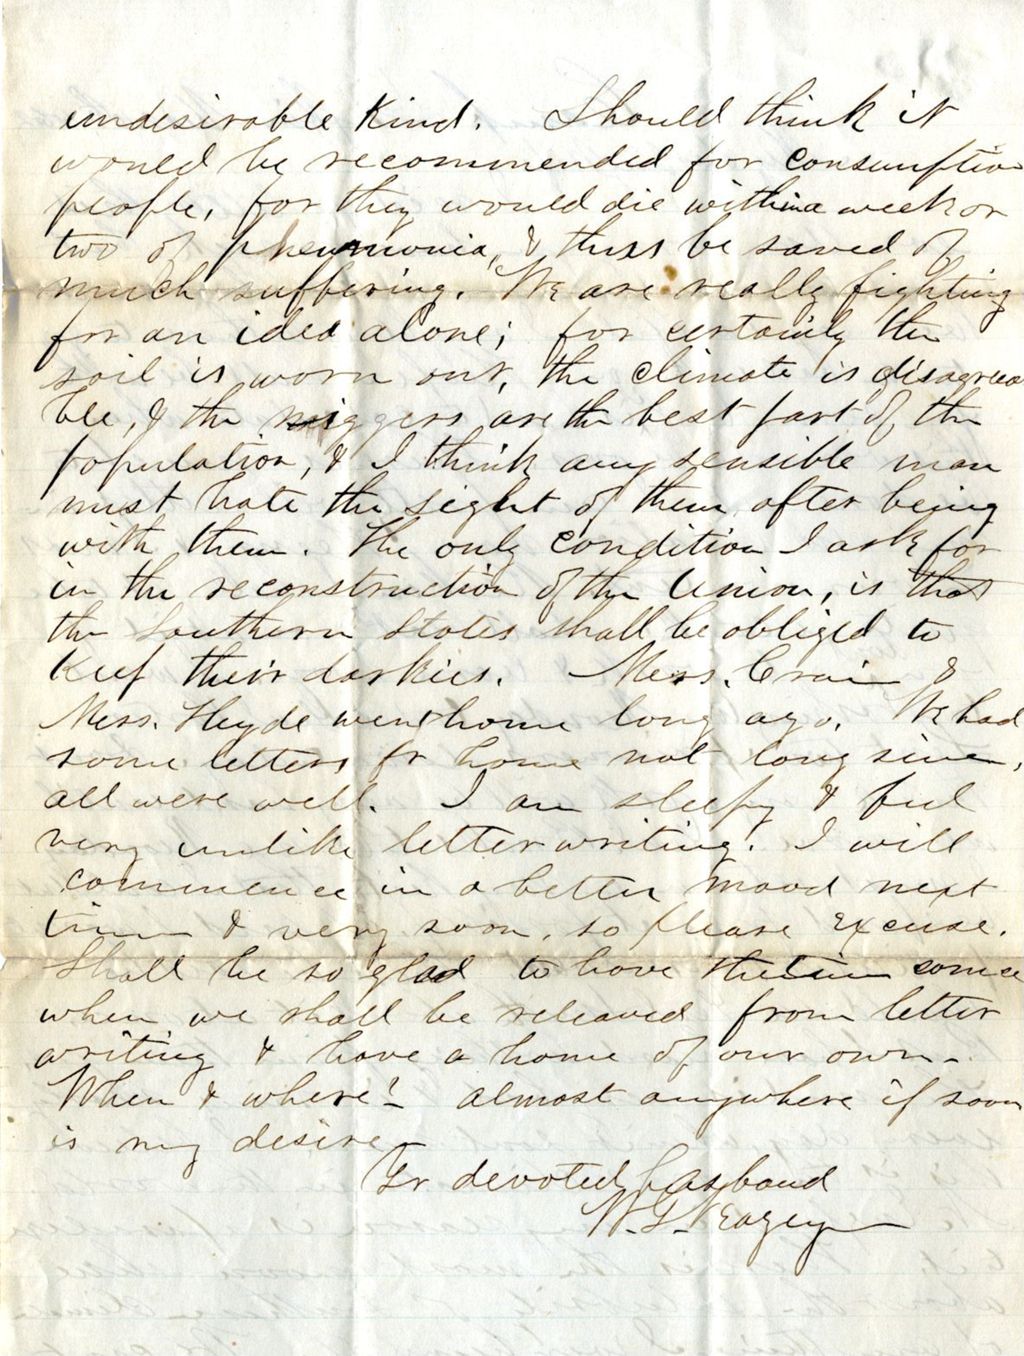 undesirable kind. Should think it
would be recommended for consumptive
people, for they would die within a week or
two of pheumonia, & thus be saved of
much suffering. We are really fighting
for an idea alone; for certainly the
soil is worn out, the climate is disagrea
ble, & the niggers are the best part of the
population, & I think any sensible man
must hate the sight of them after being
with them. The only condition I ask for
in the reconstruction of the Union, is that
the Southern States shall be obliged to
keep their darkies. Mess. Crain &
Mess. Heyde went home long ago. We had
some letters fr home not long since,
all were well. I am sleepy & feel
very unlike letter writing. I will
commence in a better mood next
time & very soon, so please excuse.
Shall be so glad to have the time come
when we shall be releaved from letter
writing & have a home of our own-
When & where! almost anywhere if soon
is my desire-
Yr devoted husband
W. G. Veazey